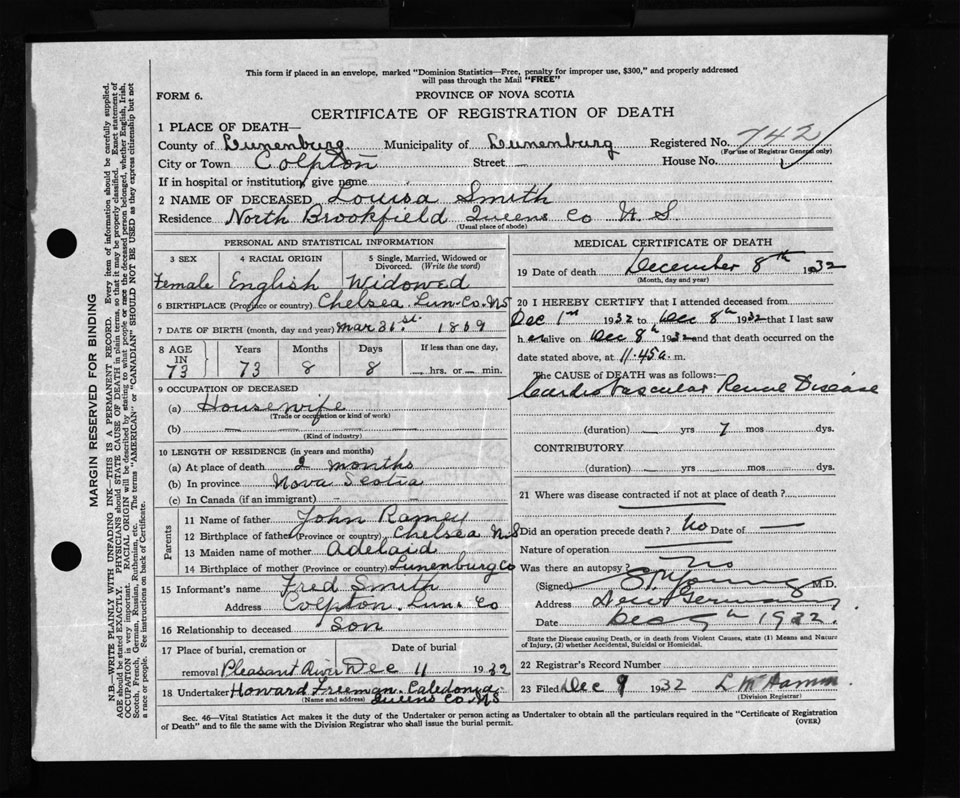 This form if placed in an envelope, marked "Dominion Statistics—Free, penalty for improper use, $300," and properly addressed
will pass through the Mail "FREE"
FORM 6.
PROVINCE OF NOVA SCOTIA
CERTIFICATE OF REGISTRATION OF DEATH
1 PLACE OF DEATH—
County of Lunenburg Municipality of Lunenburg Registered No. 742
(For use of Registrar General only)
City or Town Colpton Street — House No.
If in hospital or institution, give name
2 NAME OF DECEASED Louisa Smith
Residence North Brookfield Queens Co N. S.
(Usual place of abode)
PERSONAL AND STATISTICAL INFORMATION
3 SEX 4 RACIAL ORIGIN 5 Single, Married, Widowed or
Divorced. (Write the word)
Female English Widowed
6 BIRTHPLACE (Province or country) Chelsea Lun. Co. NS
7 DATE OF BIRTH (month, day and year) Mar 31st. 1859
8 AGE IN Years Months Days If less than one day,
73 73 8 8 — hrs. or — min.
9 OCCUPATION OF DECEASED
(a) Housewife
(Trade or occupation or kind of work)
(b) — — — —
(Kind of industry)
10 LENGTH OF RESIDENCE (in years and months)
(a) At place of death 2 months
(b) In province Nova Scotia
(c) In Canada (if an immigrant) - -
Parents
11 Name of father John Ramey
12 Birthplace of father (Province or country) Chelsea N.S
13 Maiden name of mother Adelaid
14 Birthplace of mother (Province or country) Lunenburg Co
15 Informant's name Fred Smith
Address Colpton. Lun. Co
16 Relationship to deceased Son
17 Place of burial, cremation or Date of burial
removal Pleasant River Dec 11 1932
18 Undertaker Howard Freeman. Caledonia
(Name and address) Queens Co. NS
MEDICAL CERTIFICATE OF DEATH
19 Date of death December 8th 1932
(Month, day and year)
20 I HEREBY CERTIFY that I attended deceased from
Dec 1st 1932 to Dec 8th 1932 that I last saw
her alive on Dec 8th 1932 and that death occurred on the
date stated above, at 11.45 a. m.
The CAUSE OF DEATH was as follows:—
Cardio Vascular Renal Disease
(duration) — yrs 7 mos — dys.
CONTRIBUTORY
(duration) — yrs. — mos. — dys.
21 Where was disease contracted if not at place of death?
Did an operation precede death? No Date of —
Nature of operation —
Was there an autopsy? No
(Signed) Young M.D.
Address New Germany
Date Dec 9th 1932.
State the Disease causing Death, or in death from Violent Causes, state (1) Means and Nature
of Injury, (2) whether Accidental, Suicidal or Homicidal.
22 Registrar's Record Number
23 Filed Dec 9 1932 L W Hamm
(Division Registrar)
Sec. 46—Vital Statistics Act makes it the duty of the Undertaker or person acting as Undertaker to obtain all the particulars required in the "Certificate of Registration
of Death" and to file the same with the Division Registrar who shall issue the burial permit.
(OVER)
MARGIN RESERVED FOR BINDING
N.B.—WRITE PLAINLY WITH UNFADING INK—THIS IS A PERMANENT RECORD. Every item of information should be carefully supplied.
AGE should be stated EXACTLY. PHYSICIANS should STATE CAUSE OF DEATH in plain terms, so that it may be properly classified. Exact statement of
OCCUPATION is very important. RACIAL ORIGIN will be described by stating to what people or race the deceased person belonged, whether English, Irish,
Scotch, French, German, Russian, Ruthenian, etc. The terms "AMERICAN" or "CANADIAN" SHOULD NOT BE USED as they express citizenship but not
a race or people. See instructions on back of Certificate.